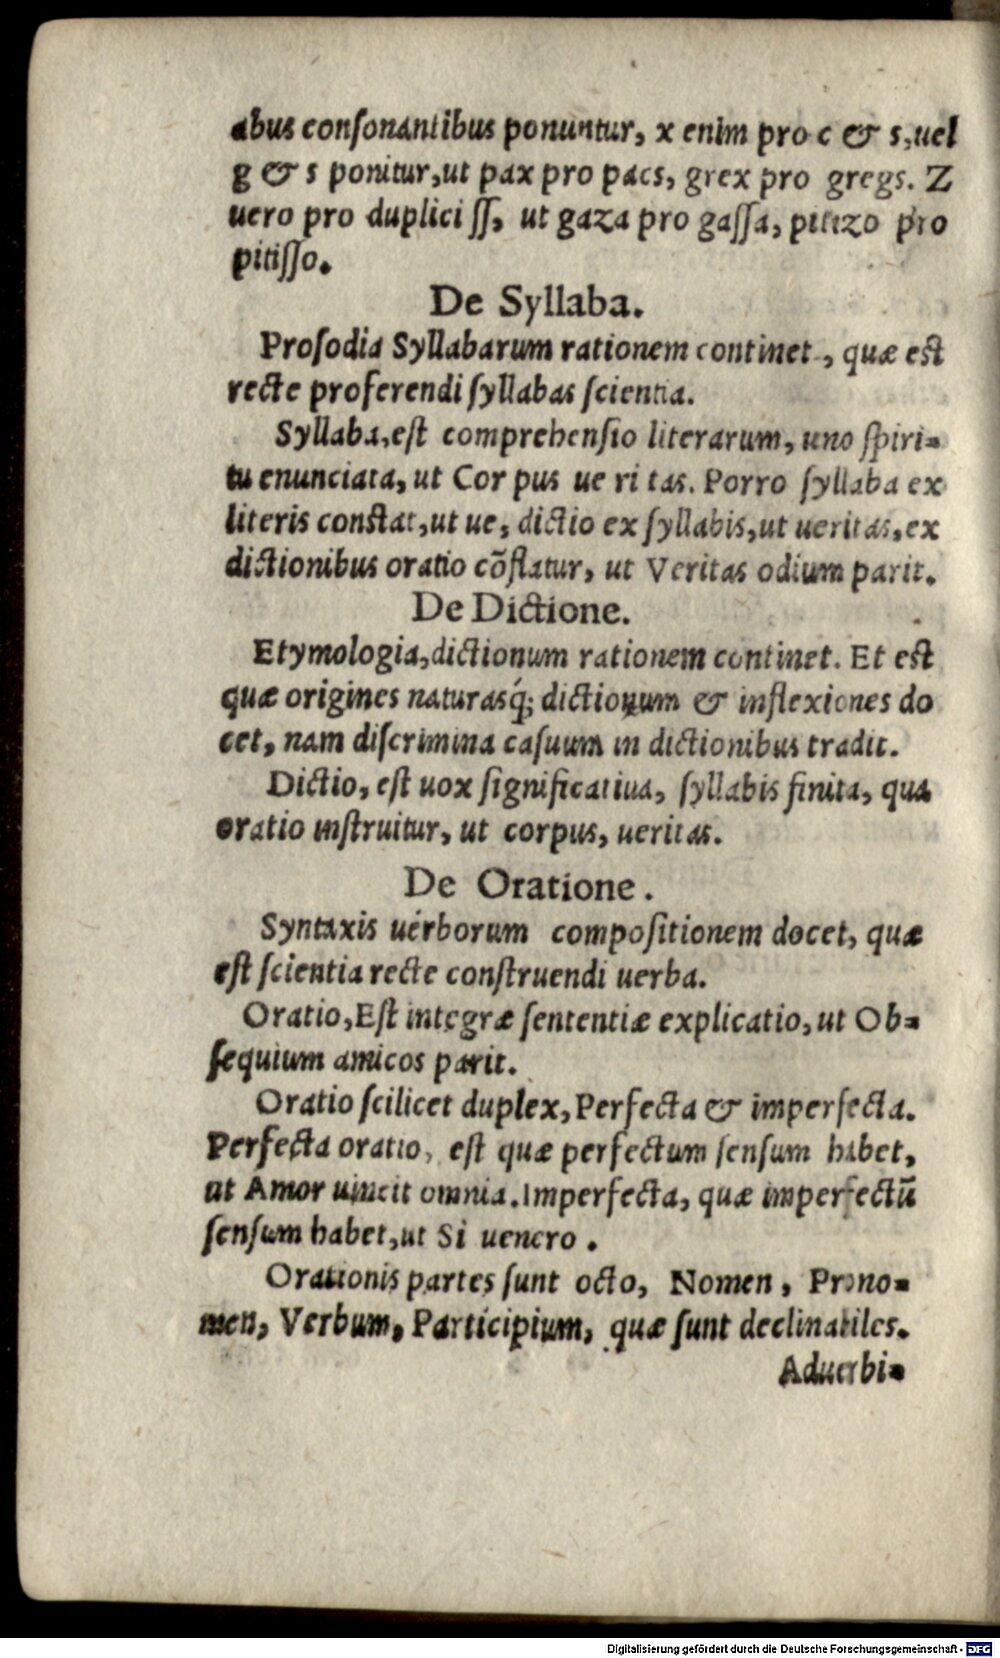 abus conſonantibus ponuntur, x enim pro c & s, uel
g & s ponitur, ut pax pro pacs, grex pro gregs. Z
uero pro duplici ſſ, ut gaza pro gaſſa, pitizo pro
pitiſſo.
De Syllaba.
Proſodia Syllabarum rationem continet, quæ est
recte proferendi ſyllabas ſcientia.
Syllaba, eſt comprehenſio literarum, uno ſpiri=
tu enunciata, ut Cor pus ue ri tas. Porro ſyllaba ex
literis constat, ut ue, dictio ex ſyllabis, ut ueritas, ex
dictionibus oratio cõflatur, ut Veritas odium parit.
De Dictione.
Etymologia, dictionum rationem continet. Et est
quæ origines naturasq́; dictionum & inflexiones do
cet, nam diſcrimina caſuum in dictionibus tradit.
Dictio, eſt uox ſignificatiua, ſyllabis finita, qua
oratio inſtruitur, ut corpus, ueritas.
De Oratione.
Syntaxis uerborum compoſitionem docet, quæ
eſt ſcientia recte conſtruendi uerba.
Oratio, Eſt integræ ſententiæ explicatio, ut Ob=
ſequium amicos parit.
Oratio ſcilicet duplex, Perfecta & imperfecta.
Perfecta oratio, eſt quæ perfectum ſenſum habet,
ut Amor uincit omnia. Imperfecta, quæ imperfectũ
ſenſum habet, ut Si uenero.
Orationis partes ſunt octo, Nomen, Prono=
men, Verbum, Participium, quæ ſunt declinabiles.
Aduerbi=
Digitalisierung gefördert durch die Deutsche Forschungsgemeinschaft - DFG